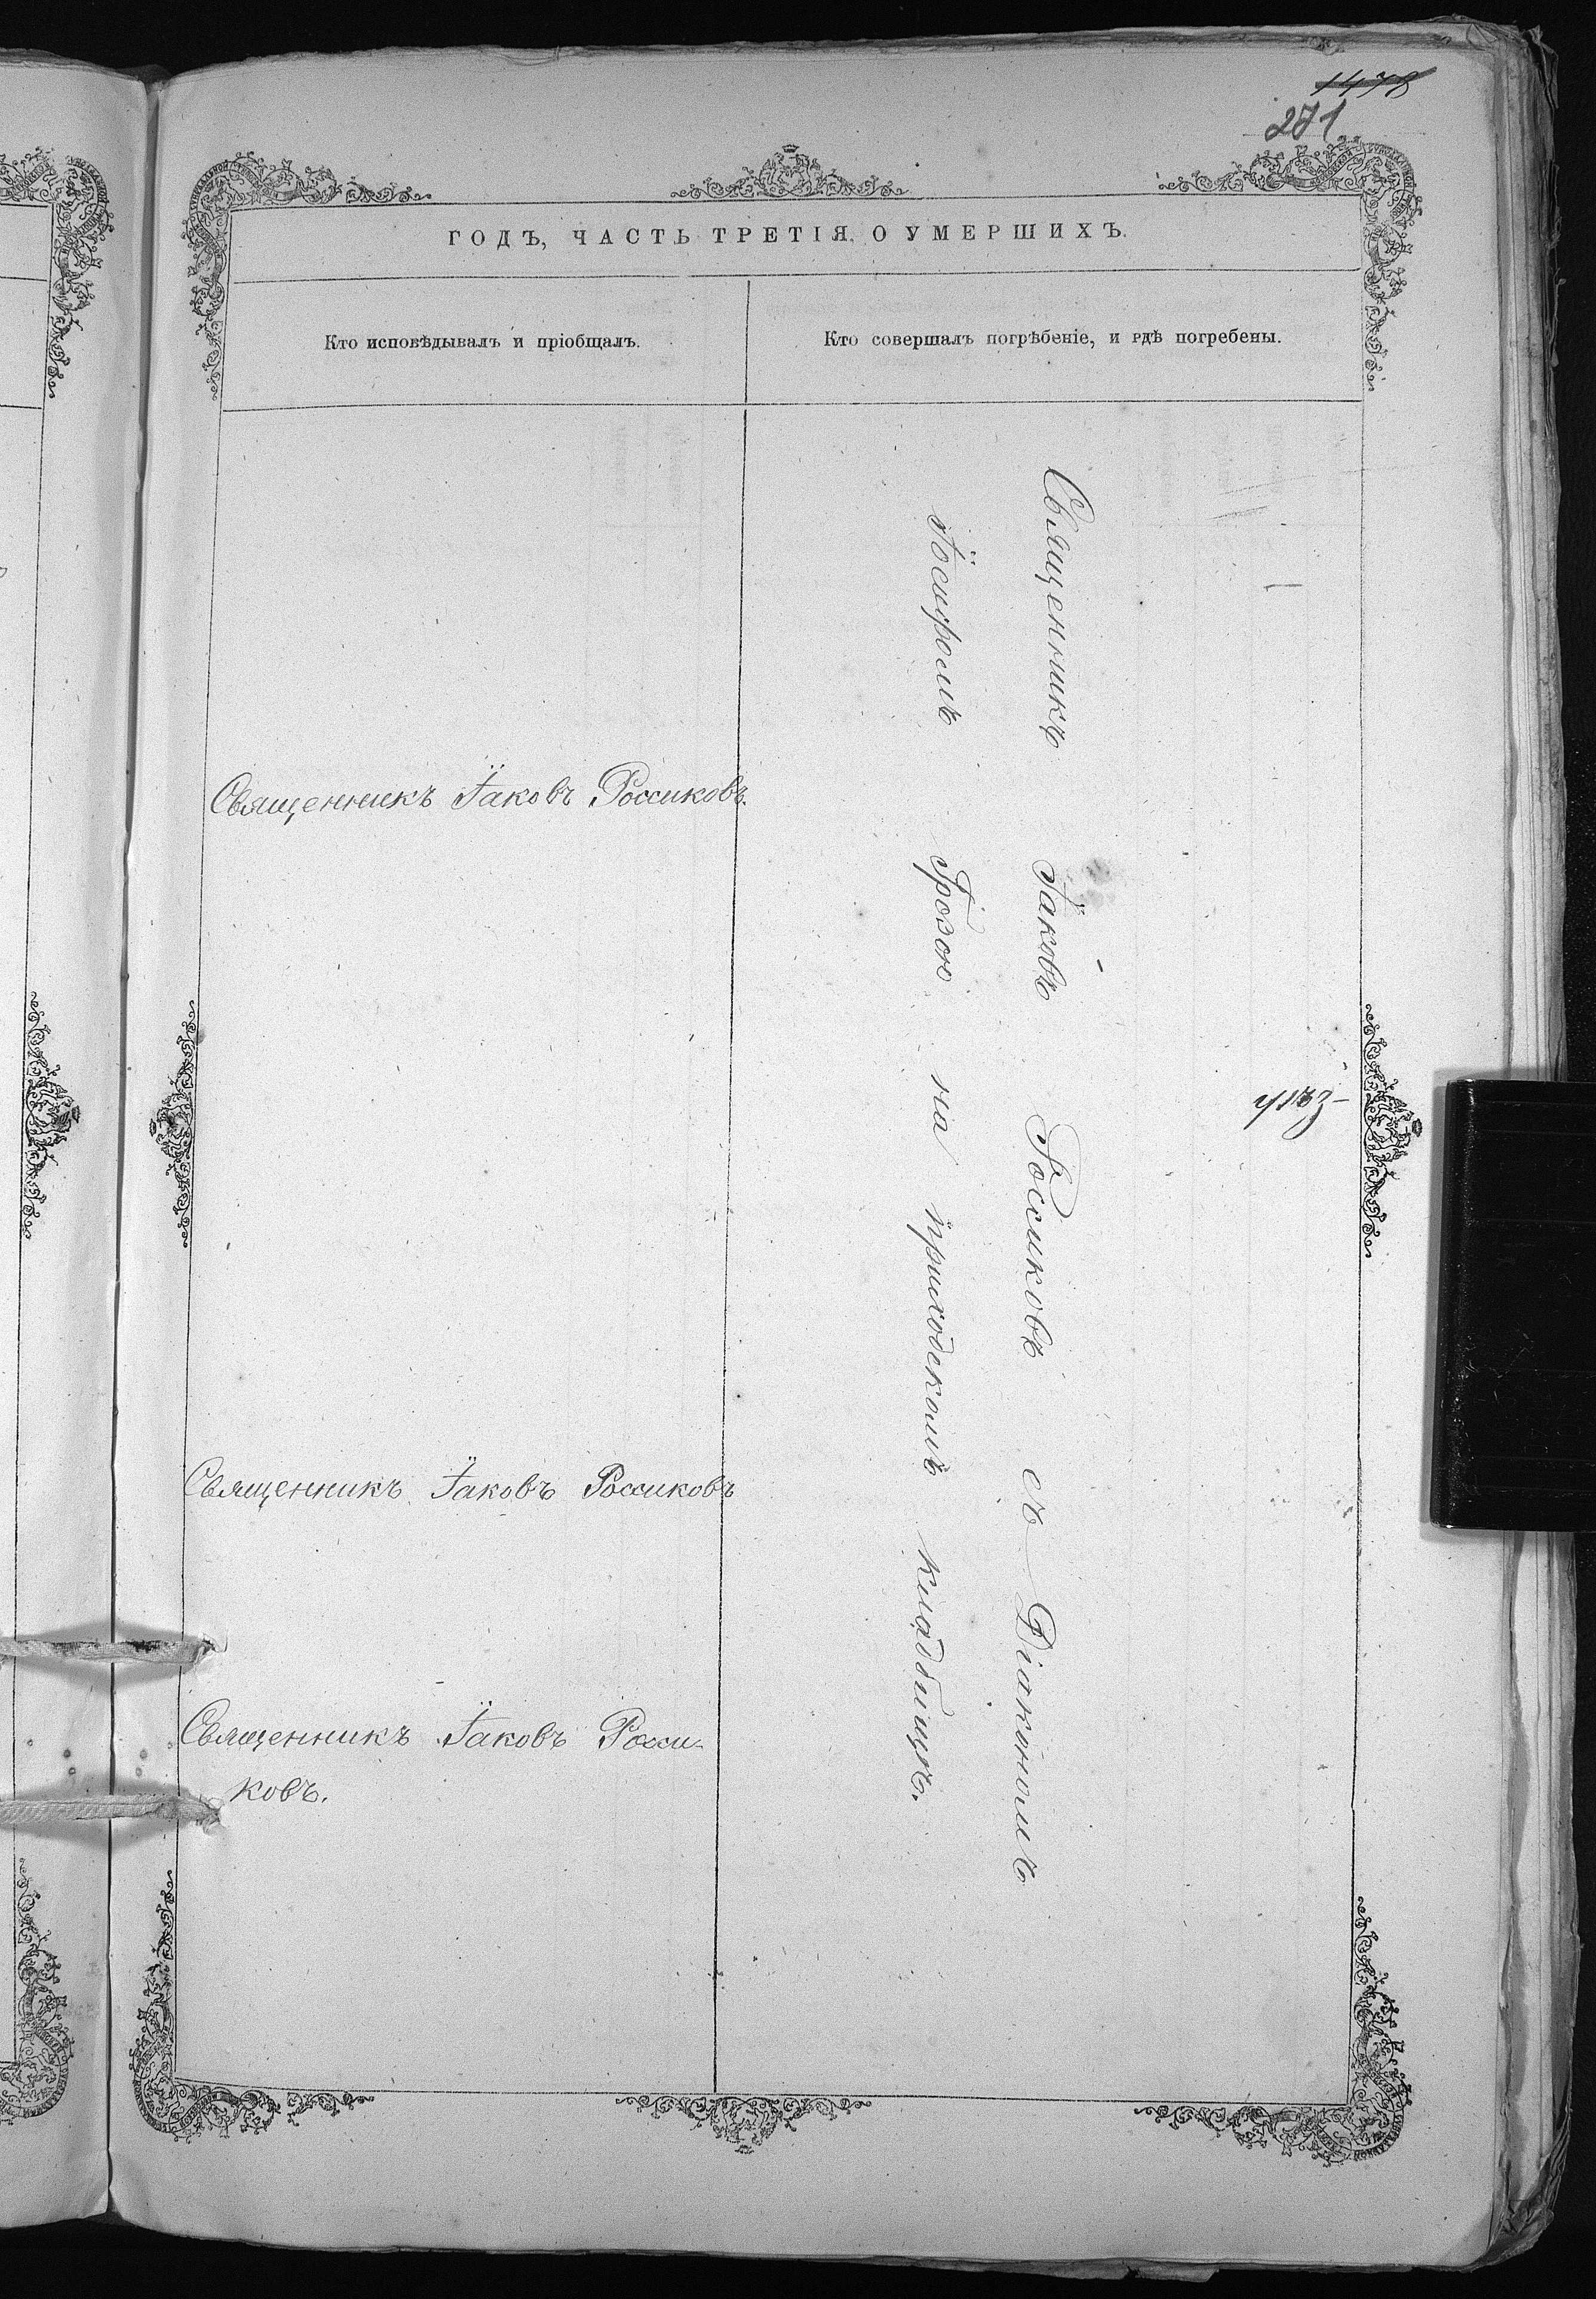 1478
271
ГОДЪ, ЧАСТЬ ТРЕТІЯ, О УМЕРШИХЪ.
Кто исповѣдывалъ и пріобщалъ.
Кто совершалъ погрѣбеніе, и гдѣ погребены.
Священникъ Іаковъ Россиковъ.
Священникъ Іаковъ Россиковъ
Священникъ Іаковъ Росси-
ковъ.
Священникъ Іаковъ Россиковъ съ Діакономъ
Іосифомъ Грозою на приходскомъ кладбищѣ.